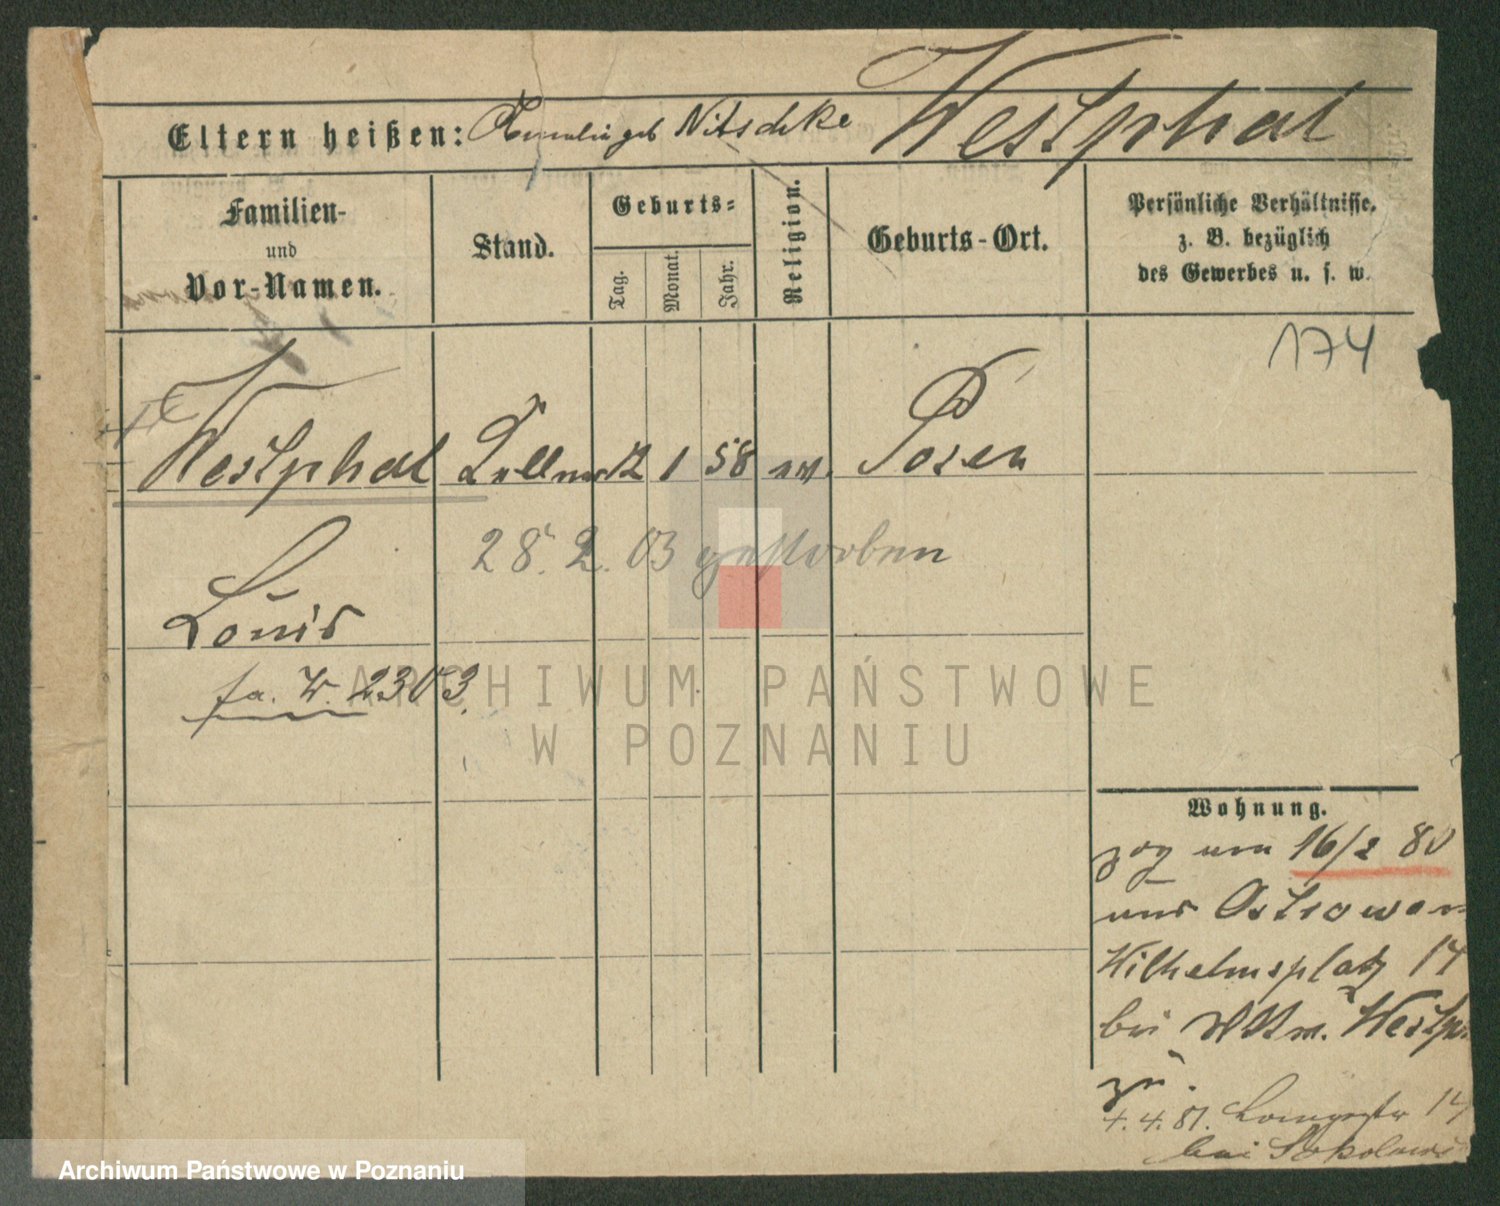 Westphal
Eltern heißen: geb Nitschke
Familien-
und
Vor-Namen.
Stand.
Geburts-
Tag.
Monat.
Jahr.
Religion.
Geburts-Ort.
Persönliche Verhältnisse,
z. B. bezüglich
des Gewerbes u. s. w.
174
Westphal Kellner 12 1 58 ev. Posen
28. 2. 03 gestorben
Louis
fa. W. 2303.
ARCHIWUM PAŃSTWOWE
W POZNANIU
Wohnung.
zog am 16/2 80
aus Ostrowo
Wilhelmsplatz 14
bei Wttw. Westph
zu.
4. 4. 81. 14
bei
Archiwum Państwowe w Poznaniu